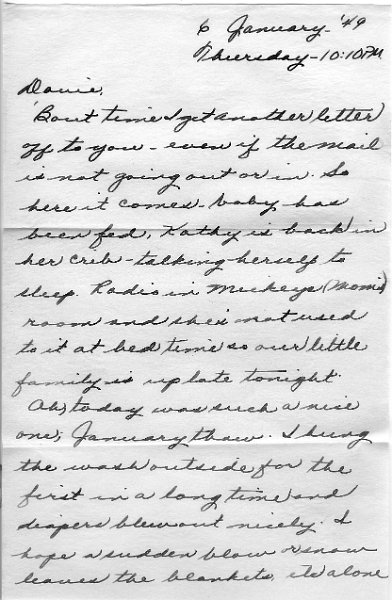 6 January - '49
Thursday - 10:10 PM
Davie,
'Bout time I get another letter
off to you - even if the mail
is not going out or in. So
here it comes - baby has
been fed, Kathy is back in
her crib - talking herself to
sleep. Radio in Mickeys (Mom's)
room and she's not used
to it at bed time so our little
family is up late tonight.
Ah, today was such a nice
one; January thaw. I hung
the wash outside for the
first in a long time and
diapers blew out nicely. I
hope a sudden blow or snow
leaves the blankets alone